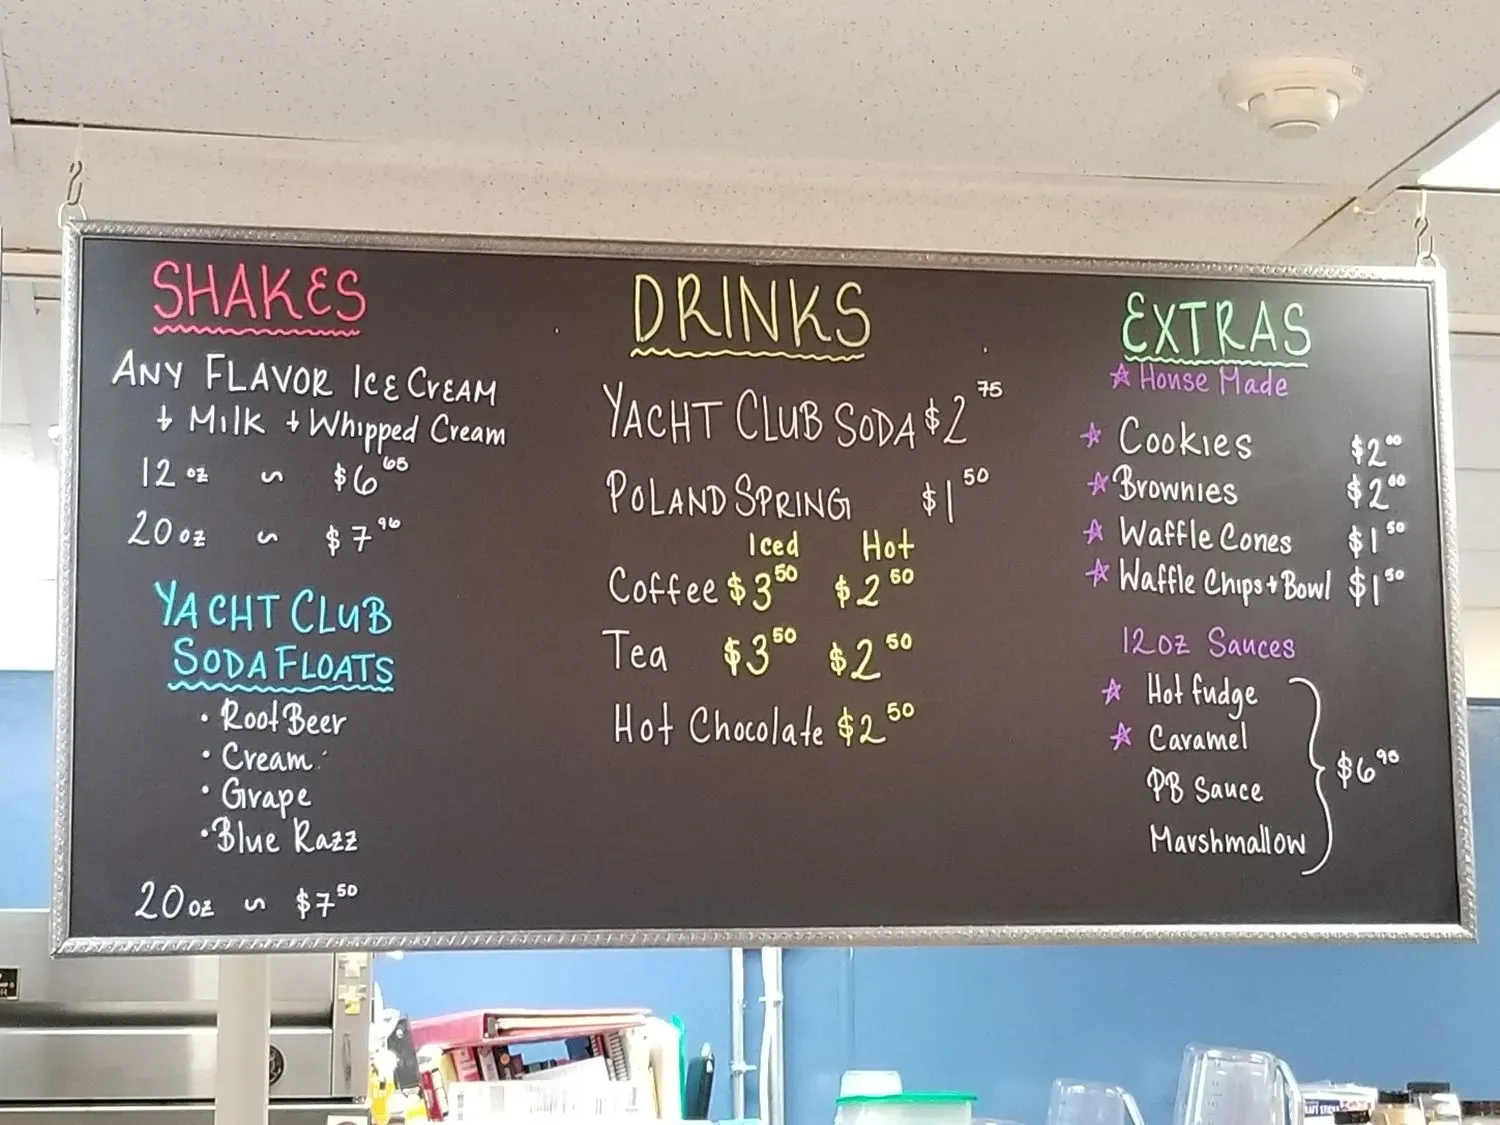 SHAKES
ANY FLAVOR ICE CREAM
+ Milk + Whipped Cream
12 oz ~ $6 65
20 oz ~ $7 96
YACHT CLUB
SODA FLOATS
• Root Beer
• Cream
• Grape
• Blue Razz
20 oz ~ $7 50
DRINKS
YACHT CLUB SODA $2 75
POLAND SPRING $1 50
Iced Hot
Coffee $3 50 $2 50
Tea $3 50 $2 50
Hot Chocolate $2 50
EXTRAS
☆ House Made
☆ Cookies $2 00
☆ Brownies $2 00
☆ Waffle Cones $1 50
☆ Waffle Chips + Bowl $1 50
12oz Sauces
☆ Hot fudge
☆ Caramel
PB Sauce
Marshmallow
$6 90